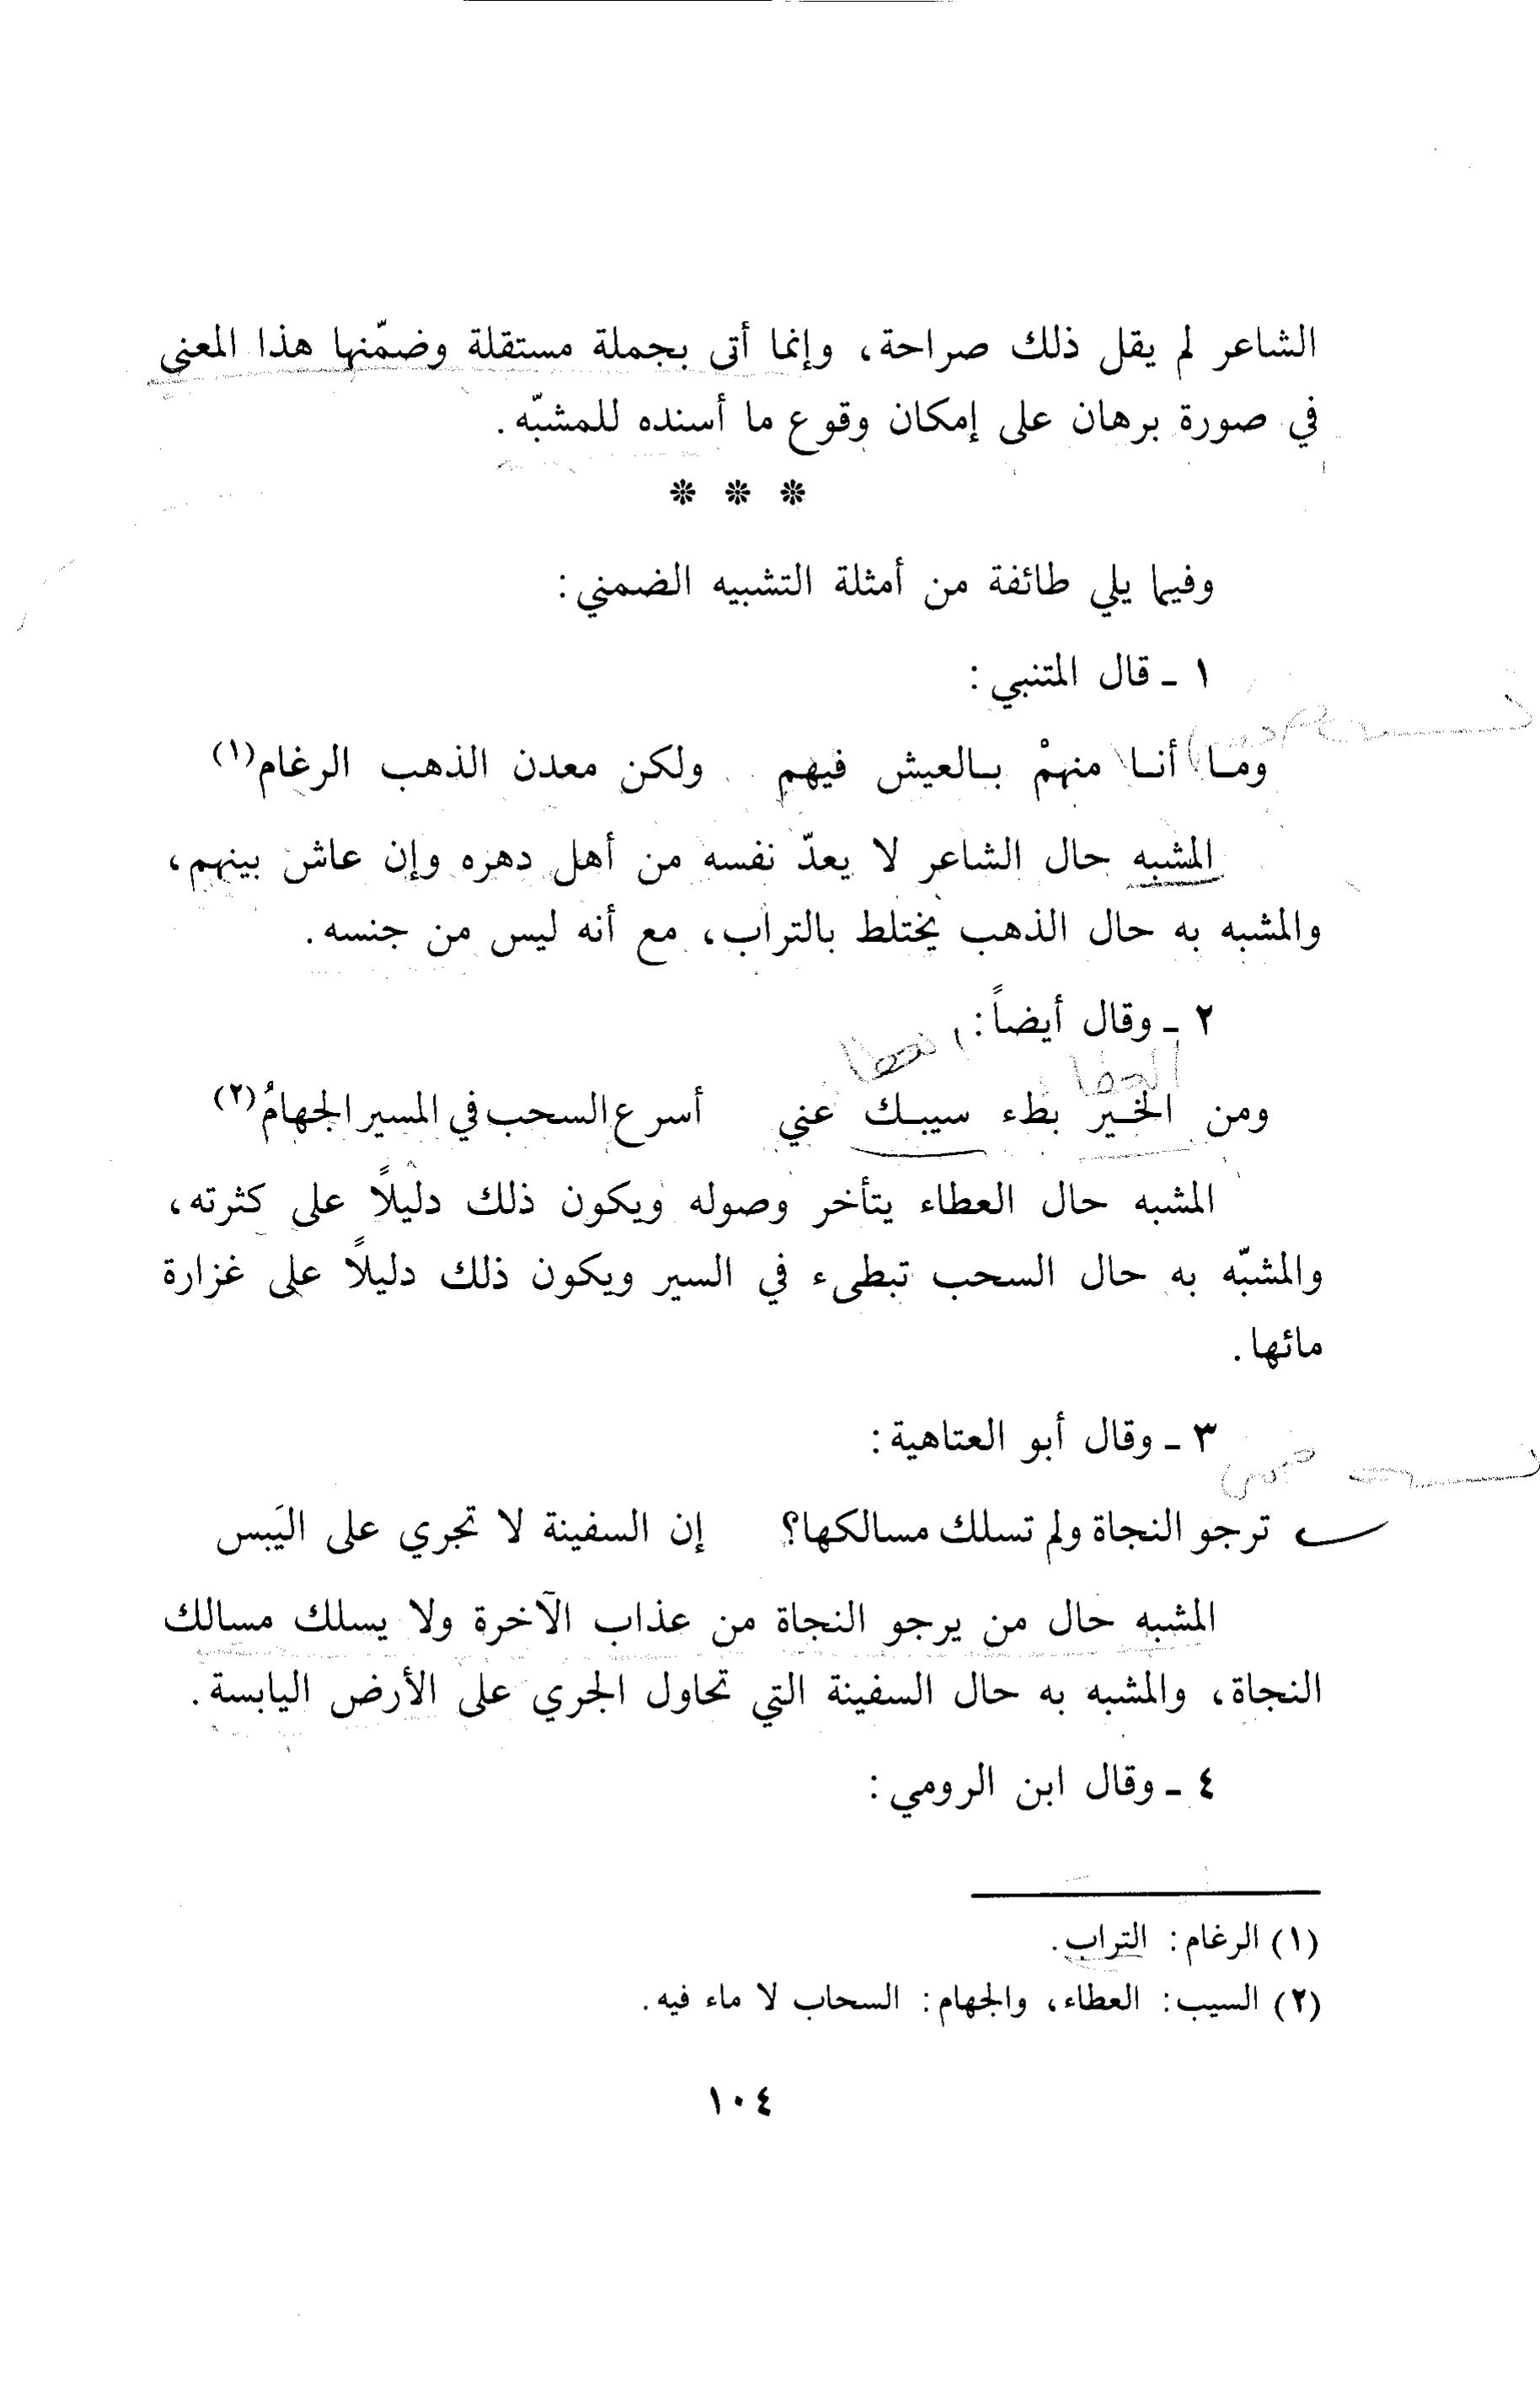 الشاعر لم يقل ذلك صراحة، وإنما أتى بجملة مستقلة وضمّنها هذا المعنى
في صورة برهان على إمكان وقوع ما أسنده للمشبّه.
* * *
وفيما يلي طائفة من أمثلة التشبيه الضمني:
١ ـ قال المتنبي:
ومـا أنـا منهمْ بـالعيش فيهم ولكن معدن الذهب الرغام(١)
المشبه حال الشاعر لا يعدّ نفسه من أهل دهره وإن عاش بينهم،
والمشبه به حال الذهب يختلط بالتراب، مع أنه ليس من جنسه.
٢ ـ وقال أيضاً:
ومن الخـير بطء سيبـك عني أسرع السحب في المسير الجهامُ(٢)
المشبه حال العطاء يتأخر وصوله ويكون ذلك دليلاً على كثرته،
والمشبّه به حال السحب تبطىء في السير ويكون ذلك دليلاً على غزارة
مائها.
٣ ـ وقال أبو العتاهية:
ترجو النجاة ولم تسلك مسالكها؟ إن السفينة لا تجري على اليَبس
المشبه حال من يرجو النجاة من عذاب الآخرة ولا يسلك مسالك
النجاة، والمشبه به حال السفينة التي تحاول الجري على الأرض اليابسة.
٤ ـ وقال ابن الرومي:
(١) الرغام: التراب.
(٢) السيب: العطاء، والجهام: السحاب لا ماء فيه.
١٠٤